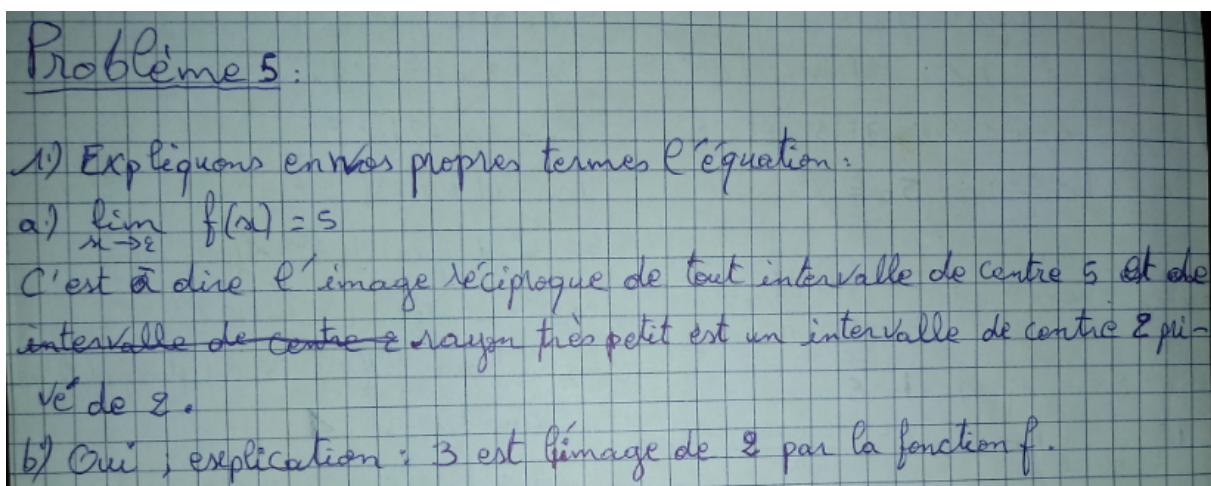 Problème 5:
1.) Expliquons en nos propres termes l'équation:
a.) lim f(x) = 5
x→2
C'est à dire l'image réciproque de tout intervalle de centre 5 et de
intervalle de centre 2 rayon très petit est un intervalle de centre 2 pri-
vé de 2.
b) Oui, explication: 3 est l'image de 2 par la fonction f.